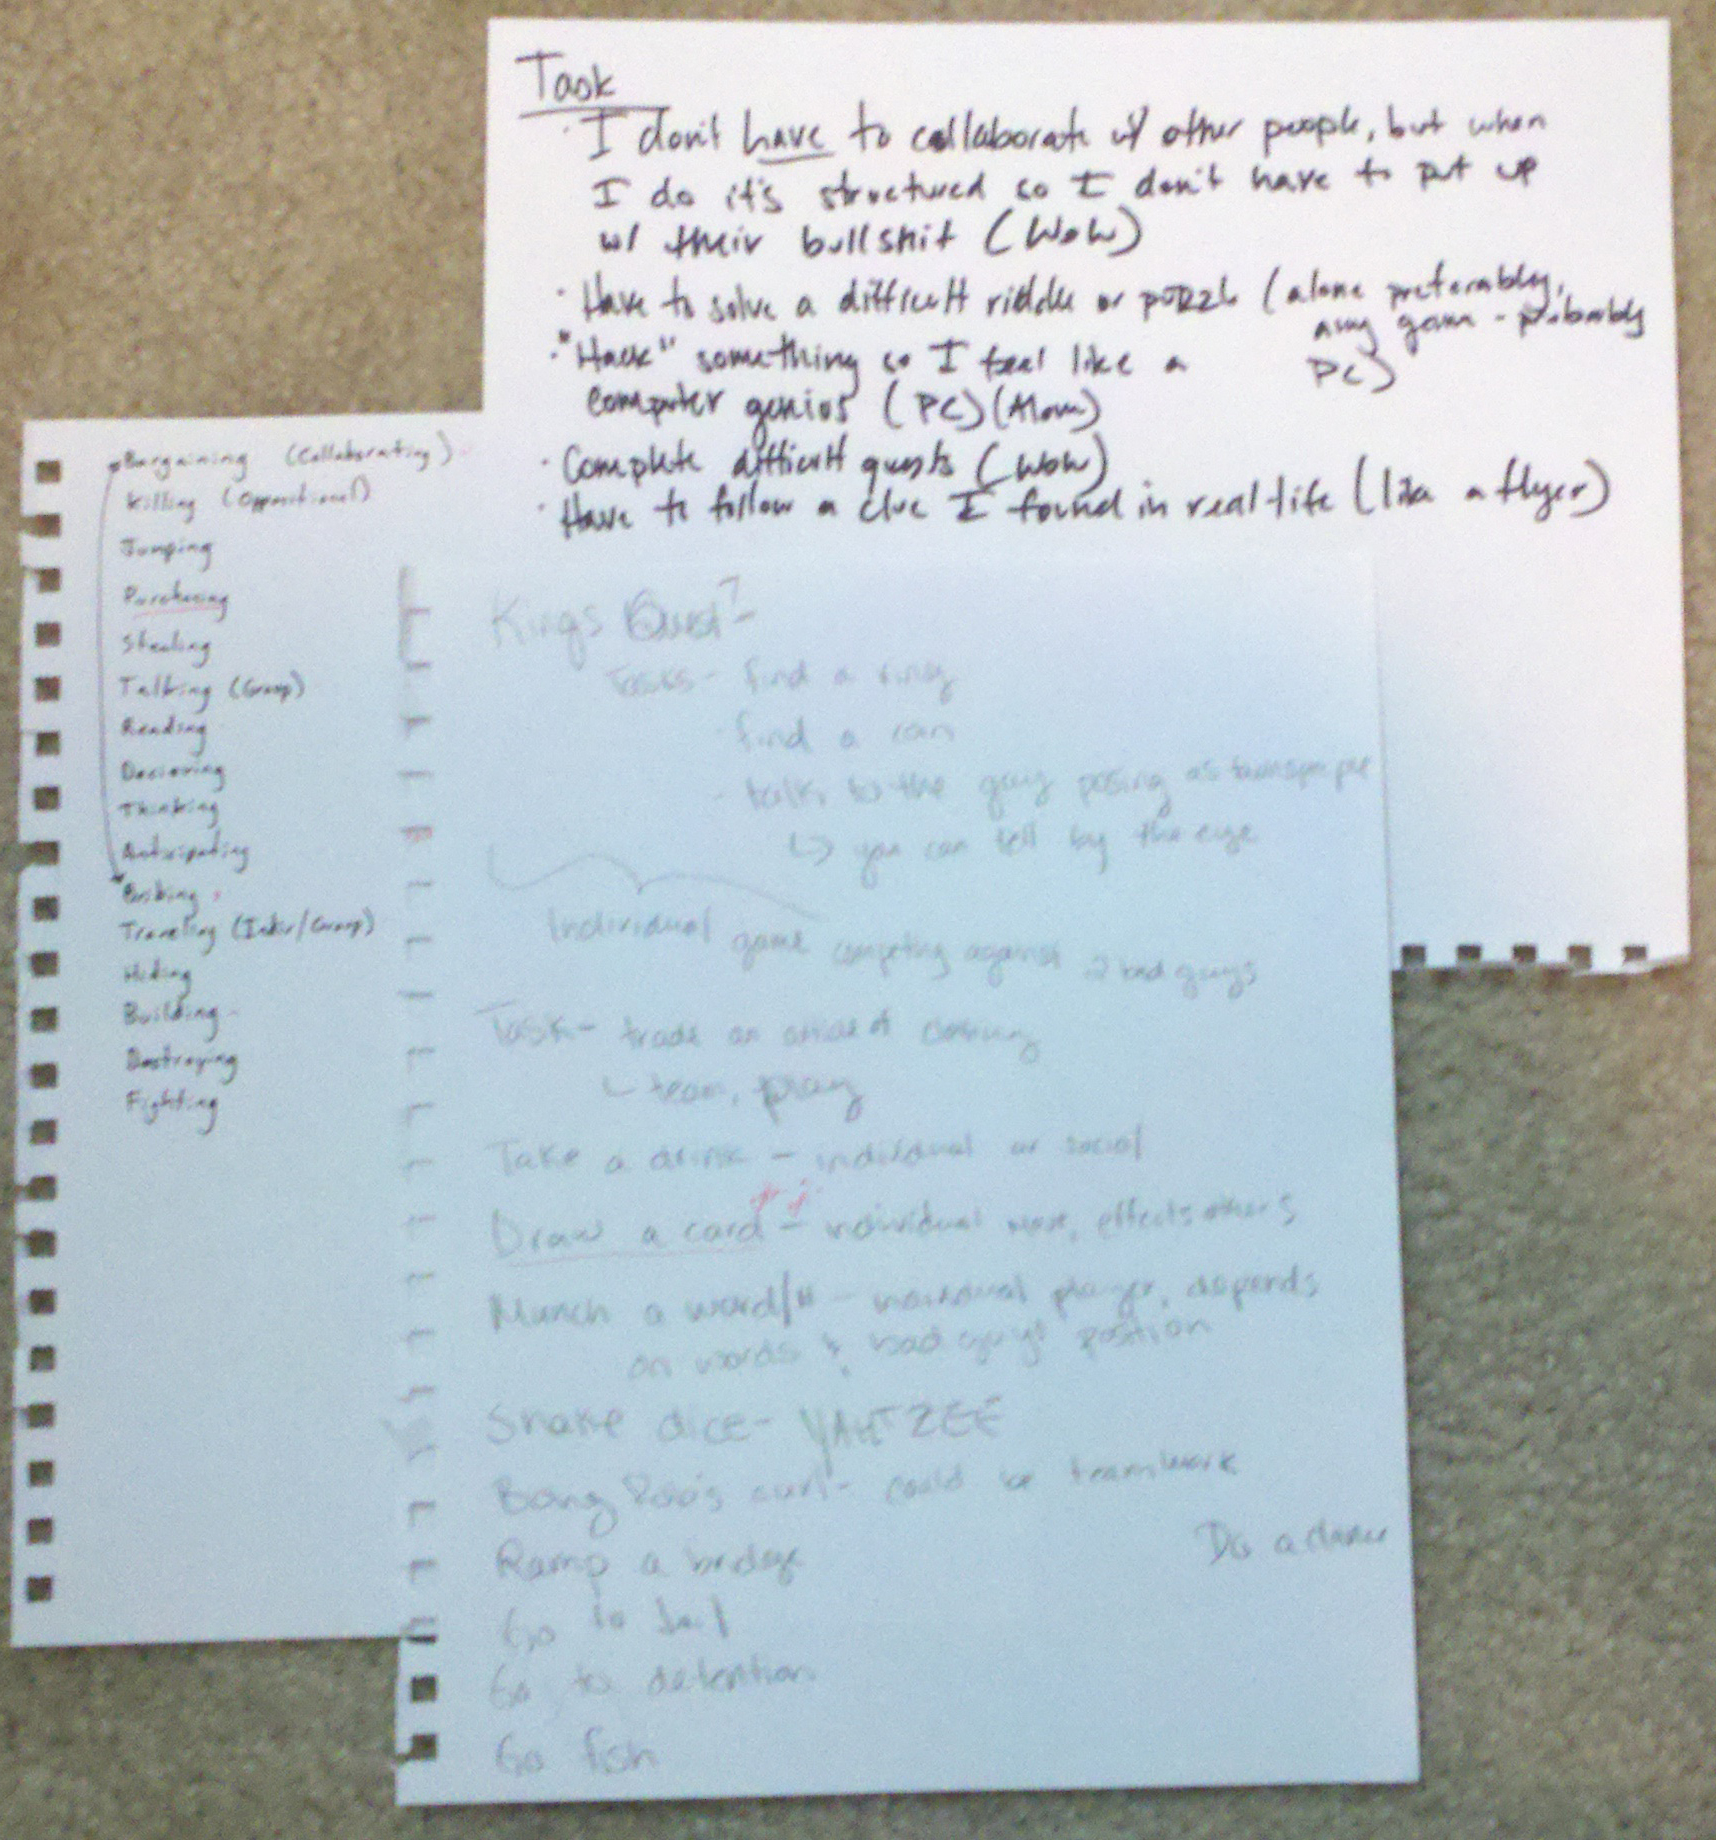 Task
· I don't have to collaborate w/ other people, but when
I do it's structured so I don't have to put up
w/ their bullshit (WoW)
· Have to solve a difficult riddle or puzzle (alone preferably,
any game - probably
PC)
· "Hack" something so I feel like a
computer genius (PC) (Alone)
· Complete difficult quests (WoW)
· Have to follow a clue I found in real life (like a flyer)
Bargaining (Collaborating)
Killing (Oppositional)
Jumping
Purchasing
Stealing
Talking (Group)
Reading
Thinking
Anticipating
Bribing
Traveling (Indiv/Group)
Hiding
Building
Destroying
Fighting
Kings Quest?-
Tasks - find a ring
· find a can
· talk to the guy posing as
↳ you can tell by the eye
Individual game competing against 2 bad guys
Task - trade an article of clothing
↳ team, play
Take a drink - individual or social
Draw a card - individual move, effects others
Munch a word/# - individual player, depends
on words & bad guys' position
Shake dice - YAHTZEE
curl - could be teamwork
Ramp a bridge
Do a dance
Go to Jail
Go to detention
Go fish